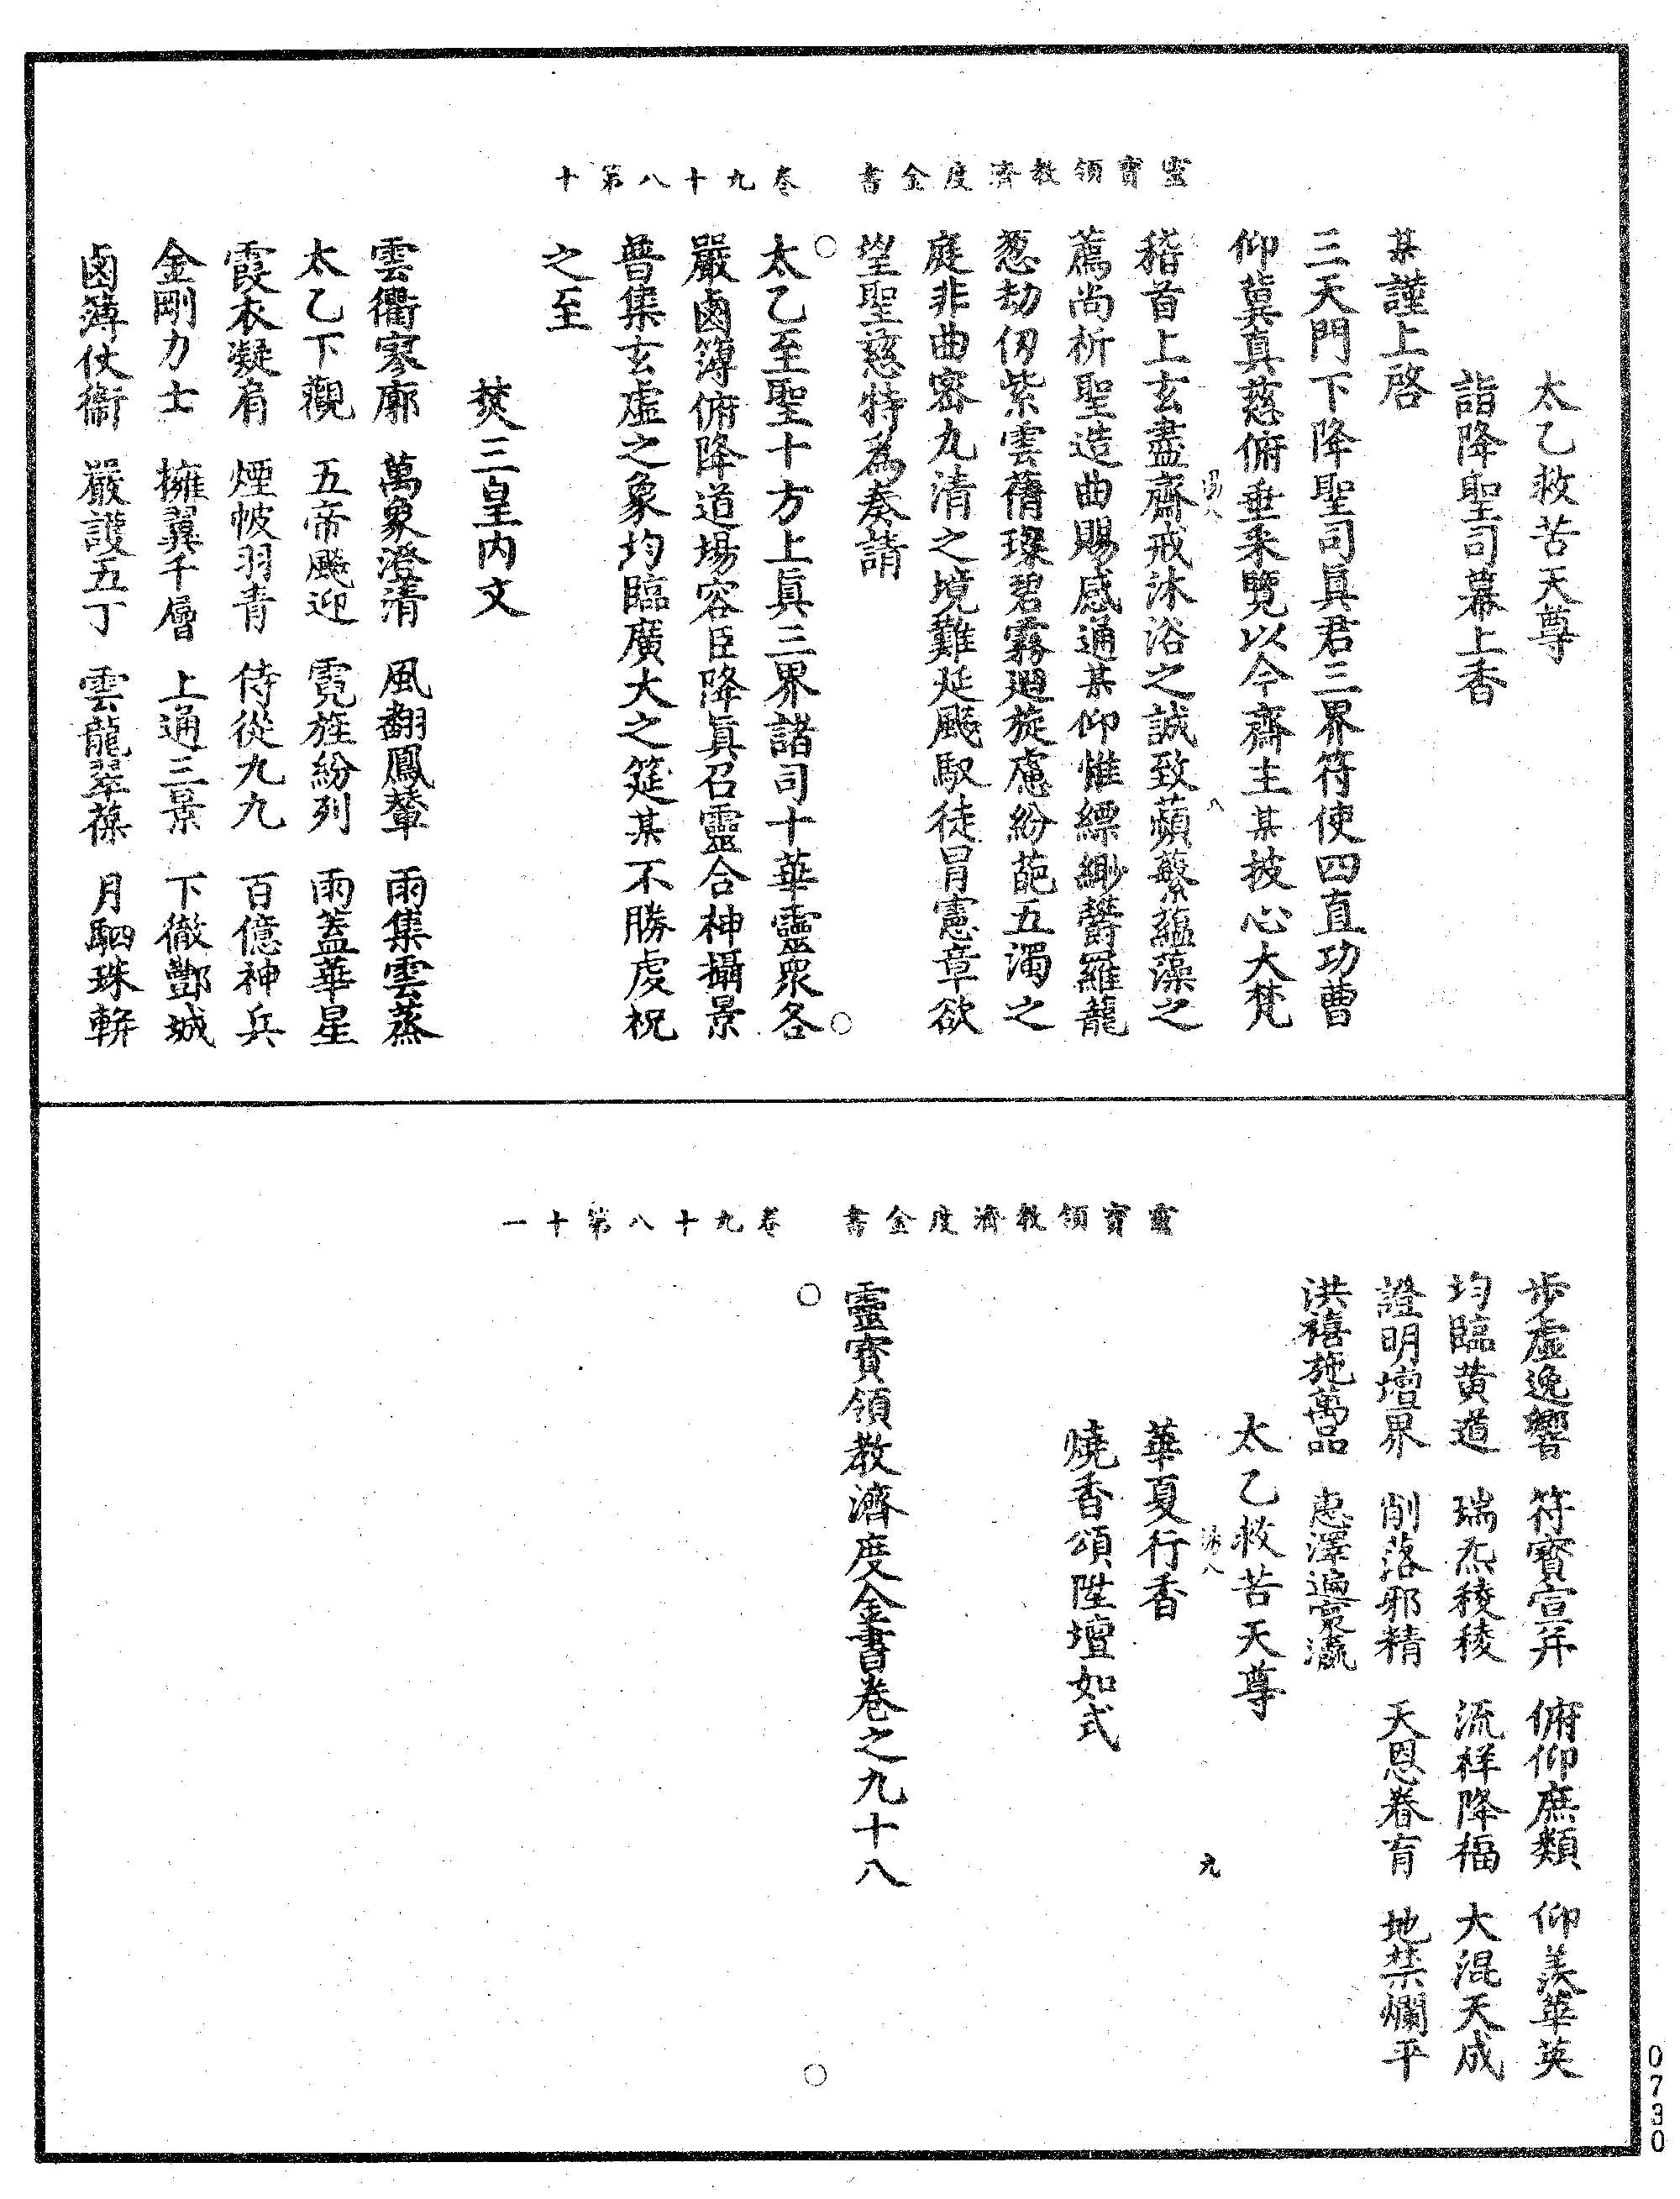 靈寶領教濟度金書　卷九十八第十
太乙救苦天尊
詣降聖司幕上香
某謹上啓
三天門下降聖司眞君三界符使四直功曹
仰冀真慈俯垂采覽以今齋主某披心大梵
稽首上玄盡齋戒沐浴之誠致蘋蘩蘊藻之
薦尚祈聖造曲賜感通某仰惟縹緲欝羅龍
葱劫仞紫雲蒨璨碧霧廻旋慮紛葩五濁之
庭非曲密九清之境難延飈馭徒冒憲章欲
望聖慈特為奏請
太乙至聖十方上眞三界諸司十華靈衆各
嚴鹵簿俯降道場容臣降眞召靈合神攝景
普集玄虛之象均臨廣大之筵某不勝虔祝
之至
焚三皇内文
雲衢寥廓　萬象澄清　風翻鳳輦　雨集雲蒸
太乙下觀　五帝飈迎　霓旌紛列　雨蓋華星
霞衣凝肩　煙帔羽青　侍從九九　百億神兵
金剛力士　擁翼千層　上通三景　下徹酆城
鹵簿仗衞　嚴護五丁　雲龍翠葆　月駟珠軿
八
靈寶領教濟度金書　卷九十八第十一
步虛逸響　符寶宣并　俯仰庶類　仰羨華英
均臨黄道　瑞炁稜稜　流祥降福　大混天成
證明壇界　削落邪精　天恩眷育　地禁爛平
洪禧施萬品　惠澤遍寰瀛
太乙救苦天尊
華夏行香
燒香頌陞壇如式
九
靈寶領教濟度金書卷之九十八
0730